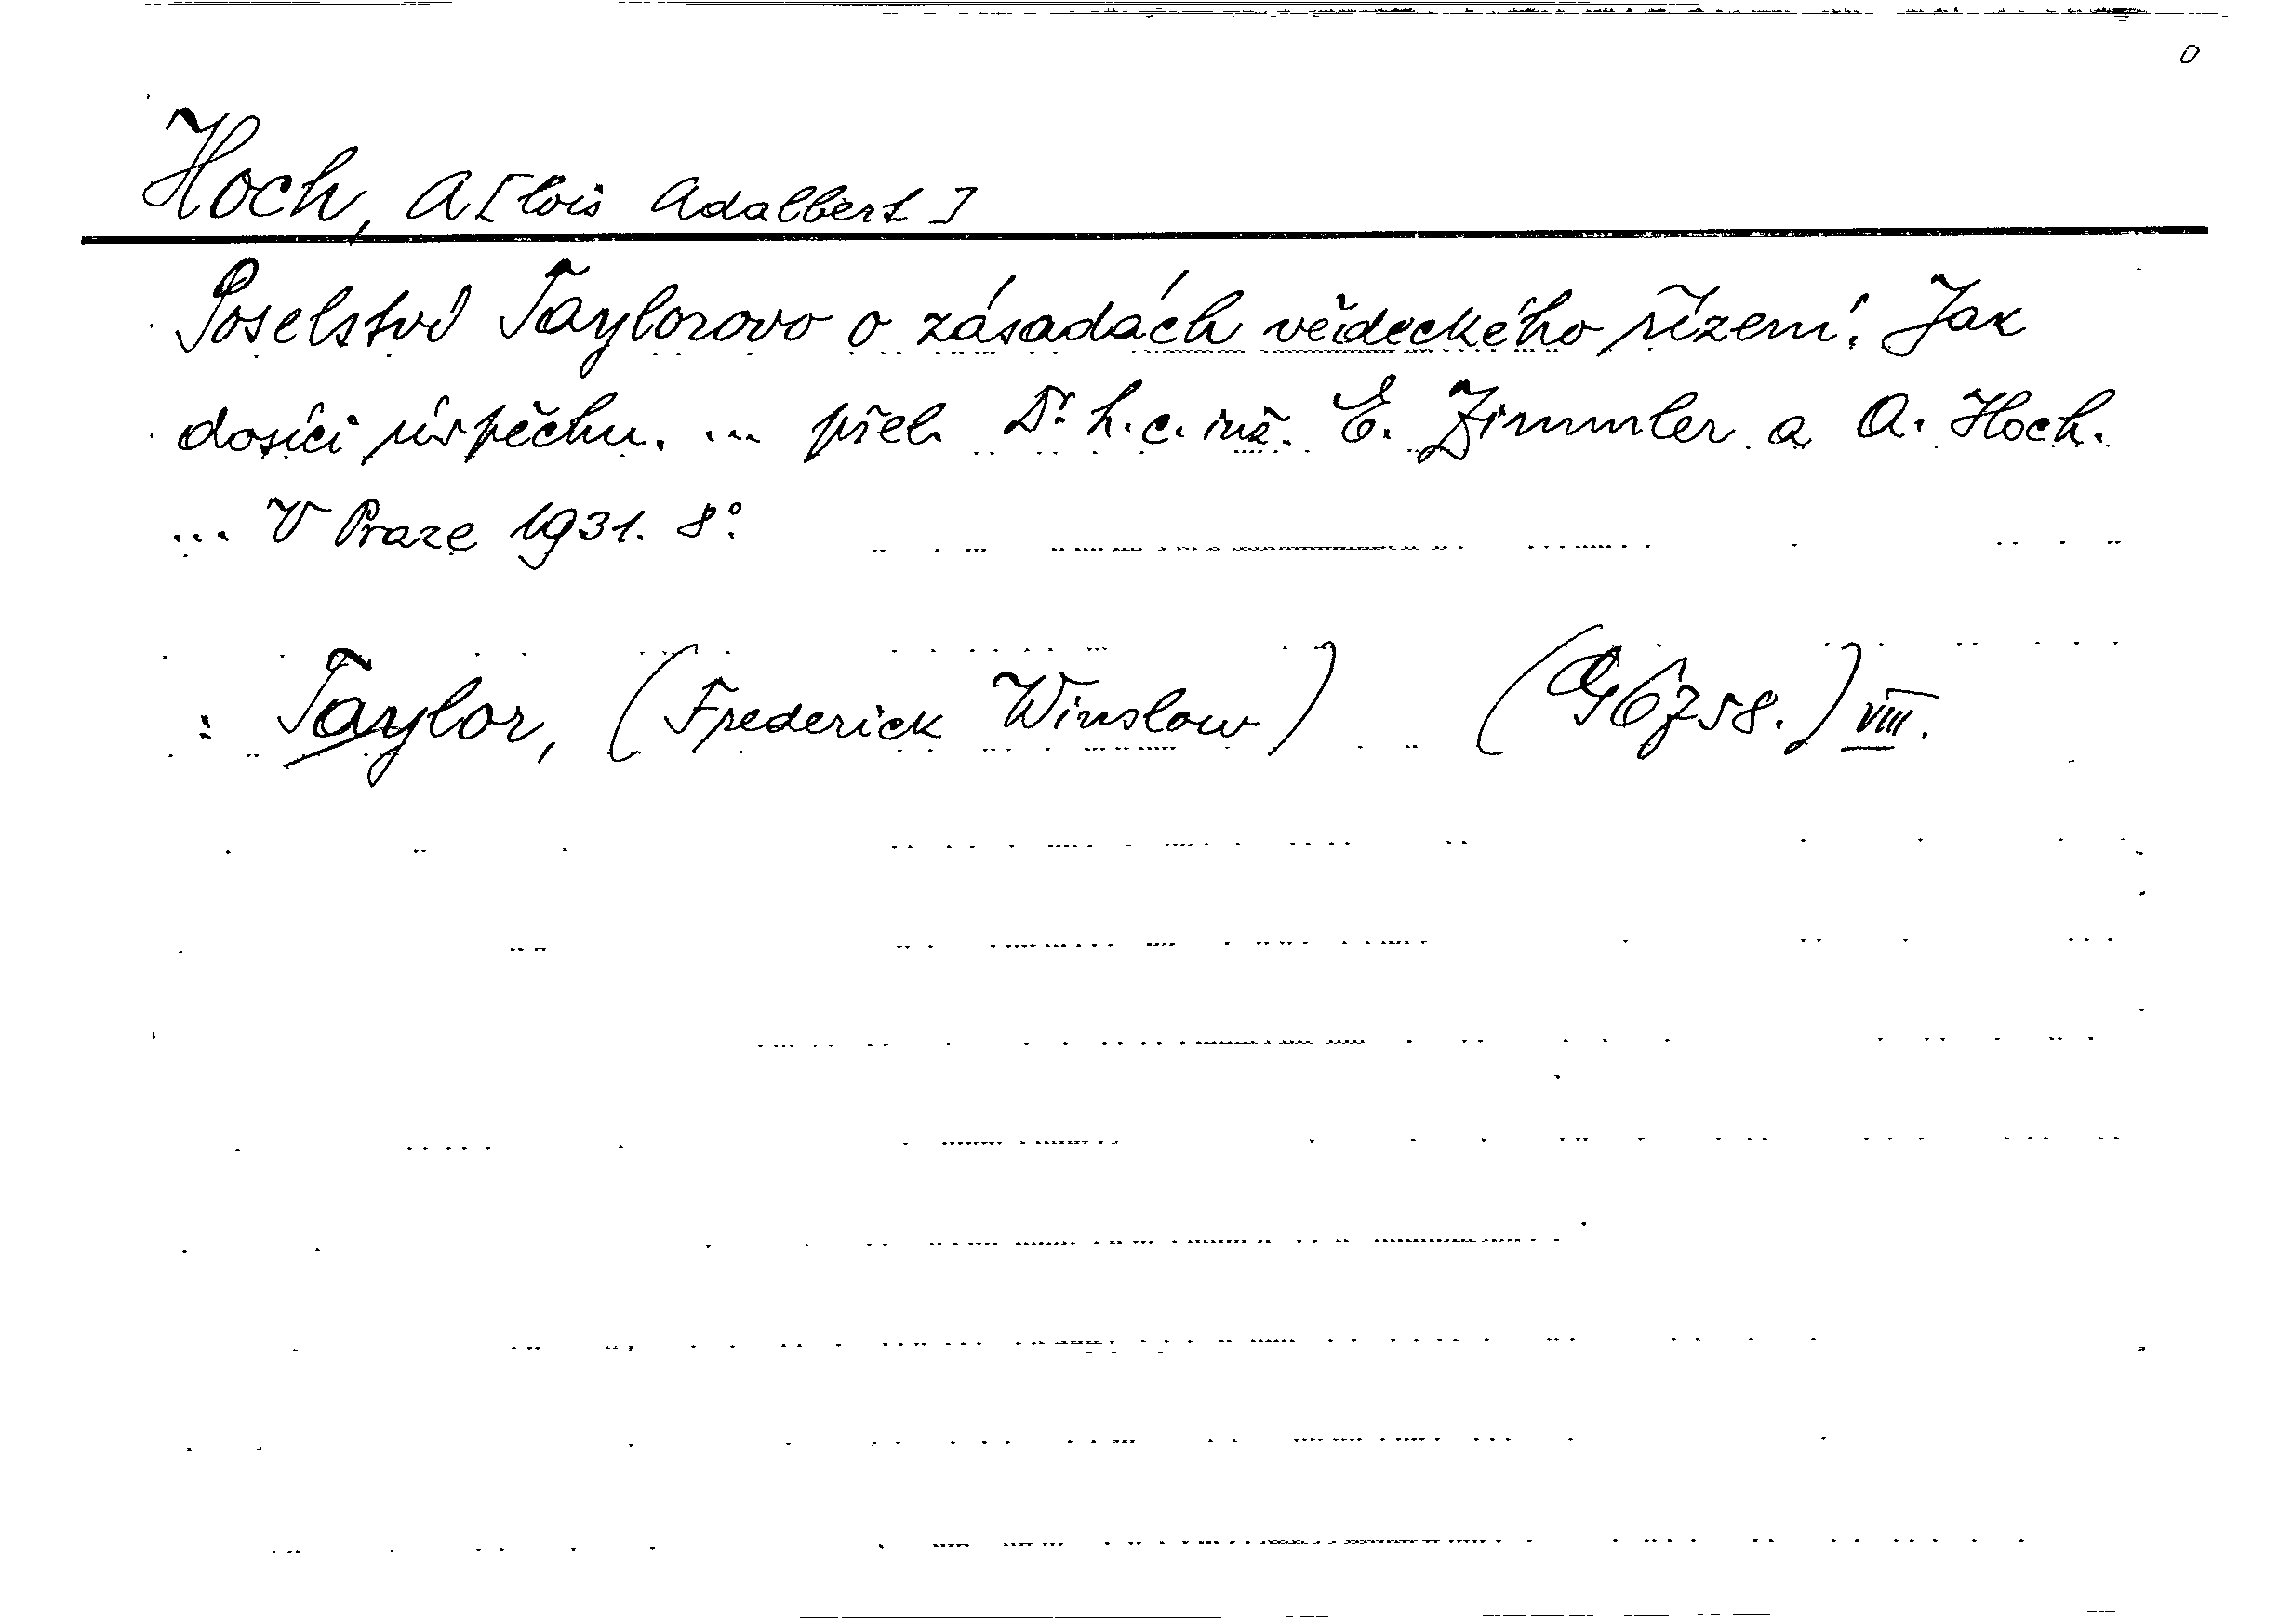 0
Hoch, A[lois Adalbert]
Poselství Taylorovo o zásadách vědeckého řízení. Jak
dosíci úspěchu. ... přel. Dr. h. c. inž. E. Zimmler a A. Hoch.
... V Praze 1931. 8°.
: Taylor, (Frederick Winslow) (G 6758.) VIII.